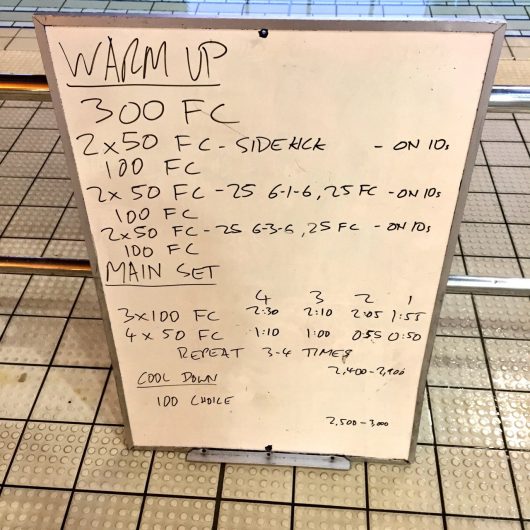 WARM UP
300 FC
2x50 FC - SIDEKICK - ON 10s
100 FC
2x50 FC - 25 6-1-6, 25 FC - ON 10s
100 FC
2x50 FC - 25 6-3-6, 25 FC - ON 10s
100 FC
MAIN SET
4 3 2 1
3x100 FC 2:30 2:10 2:05 1:55
4x50 FC 1:10 1:00 0:55 0:50
REPEAT 3-4 TIMES
2,400-2,900
COOL DOWN
100 CHOICE
2,500-3,000